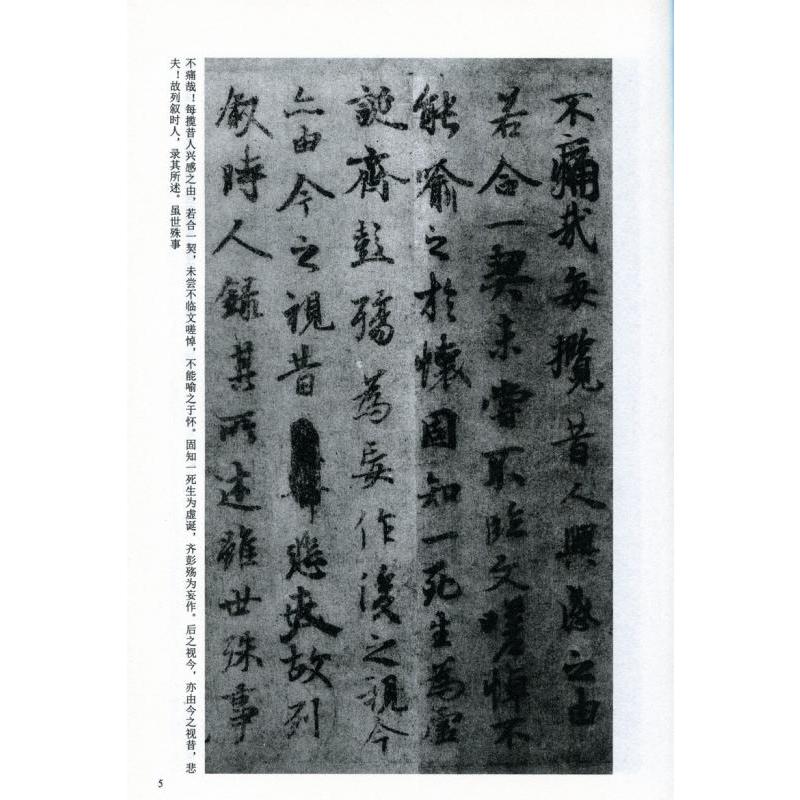 不痛哉每攬昔人興感之由
若合一契未嘗不臨文嗟悼不
能喻之於懷固知一死生為虛
誕齊彭殤為妄作後之視今
亦由今之視昔悲夫故列
敘時人錄其所述雖世殊事
不痛哉！每揽昔人兴感之由，若合一契，未尝不临文嗟悼，不能喻之于怀。固知一死生为虚诞，齐彭殇为妄作。后之视今，亦由今之视昔，悲
夫！故列叙时人，录其所述。虽世殊事
5